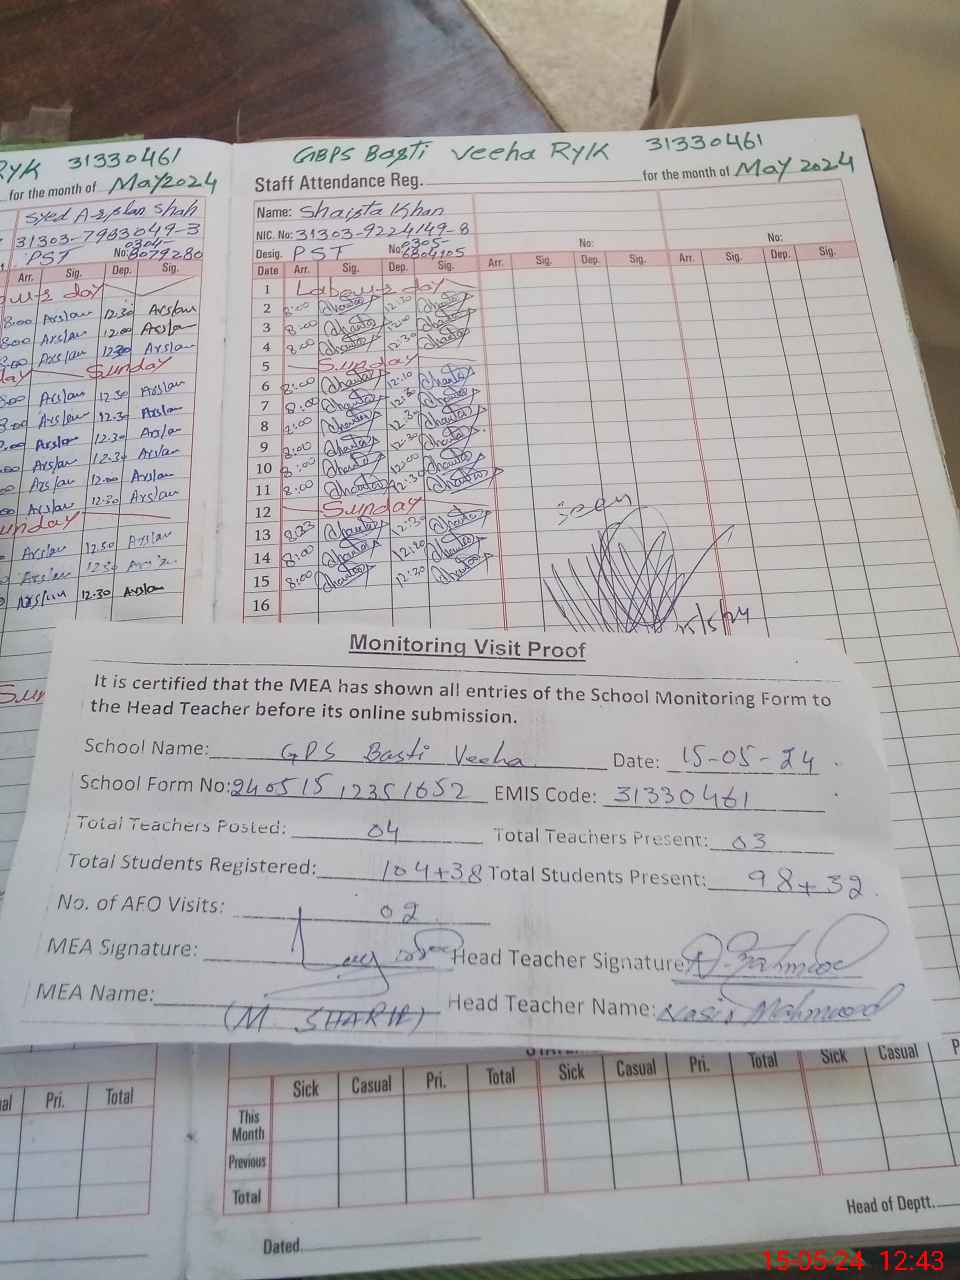 RYK 31330461
for the month of May 2024
Syed Arslan Shah
31303-7983049-3
0304-
PST No: 8079280
Arr. Sig. Dep. Sig.
day
8:00 Arslan 12.30 Arslan
800 Arslan 12.00 Arslan
Arslan 1230 Arslan
Sunday
Arslan 12.30 Arslan
Arslan 12.30 Arslan
Arslan 12.30 Arslan
Arslan 12.30 Arslan
Arslan 12.00 Arslan
Arslan 12.30 Arslan
Arslan Arslan
Arslan
Arslan 12.30 Arslan
GBPS Basti Veeha RYK 31330461
Staff Attendance Reg. for the month of May 2024
Name: Shaista Khan
NIC. No: 31303-9224149-8
Desig. PST No: 0305-6804105 No: No:
Date Arr. Sig. Dep. Sig. Arr. Sig. Dep. Sig. Arr. Sig. Dep. Sig.
1 Labour's day
2 8:00 12:30
3 8:00 12:00
4 8:00 12:30
5 Sunday
6 8:00 12:10
7 8:00 12:30
8 12:30
9 8:00 12:30
10 8:00 12:00
11 8:00 12:30
12 Sunday
13 8:23 12:30
14 8:00
15 8:00 12:30
16
Seen
15/5/24
Monitoring Visit Proof
It is certified that the MEA has shown all entries of the School Monitoring Form to
the Head Teacher before its online submission.
School Name: GPS Basti Veeha Date: 15-05-24
School Form No: 240515 12351652 EMIS Code: 31330461
Total Teachers Posted: 04 Total Teachers Present: 03
Total Students Registered: 104+38 Total Students Present: 98+32
No. of AFO Visits: 02
MEA Signature: Head Teacher Signature:
MEA Name: (M SHARIF) Head Teacher Name: Nasir Mahmood
Pri. Total
Sick Casual Pri. Total Sick Casual Pri. Total Sick Casual
This
Month
Previous
Total
Head of Deptt.
Dated
15-05-24 12:43